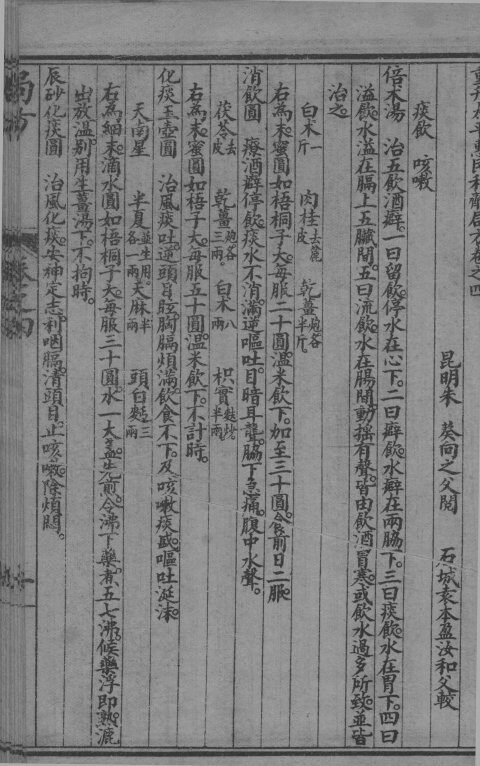 昆明朱葵向之父閱　石城袁本盈汝和父較
痰飲　咳嗽
倍朮湯　治五飲酒癖。一曰留飲。停水在心下。二曰癖飲。水癖在兩脇下。三曰痰飲。水在胃下。四曰
溢飲。水溢在膈上五臟間。五曰流飲。水在腸間。動搖有聲。皆由飲酒冒寒。或飲水過多所致。並皆
治之。
白朮一斤　肉桂去麄皮　乾薑炮各半斤
右為末。蜜圓如梧桐子大。每服二十圓。溫米飲下。加至三十圓。食前日二服。
消飲圓　療酒癖停飲。痰水不消。滿逆嘔吐。目暗耳聾。脇下急痛。腹中水聲。
茯苓去皮　乾薑炮各三兩　白朮八兩　枳實麩炒半兩
右為末。蜜圓如梧子大。每服五十圓。溫米飲下。不計時。
化痰玉壺圓　治風痰吐逆。頭目眩。胸膈煩滿。飲食不下。及咳嗽痰盛。嘔吐涎沫。
天南星　半夏並生用各一兩　天麻半兩　頭白麪三兩
右為細末。滴水圓如梧桐子大。每服三十圓。水一大盞。先煎令沸。下藥。煮五七沸。候藥浮即熟。漉
出放溫。別用生薑湯下。不拘時。
辰砂化痰圓　治風化痰。安神定志。利咽膈。清頭目。止咳嗽。除煩悶。